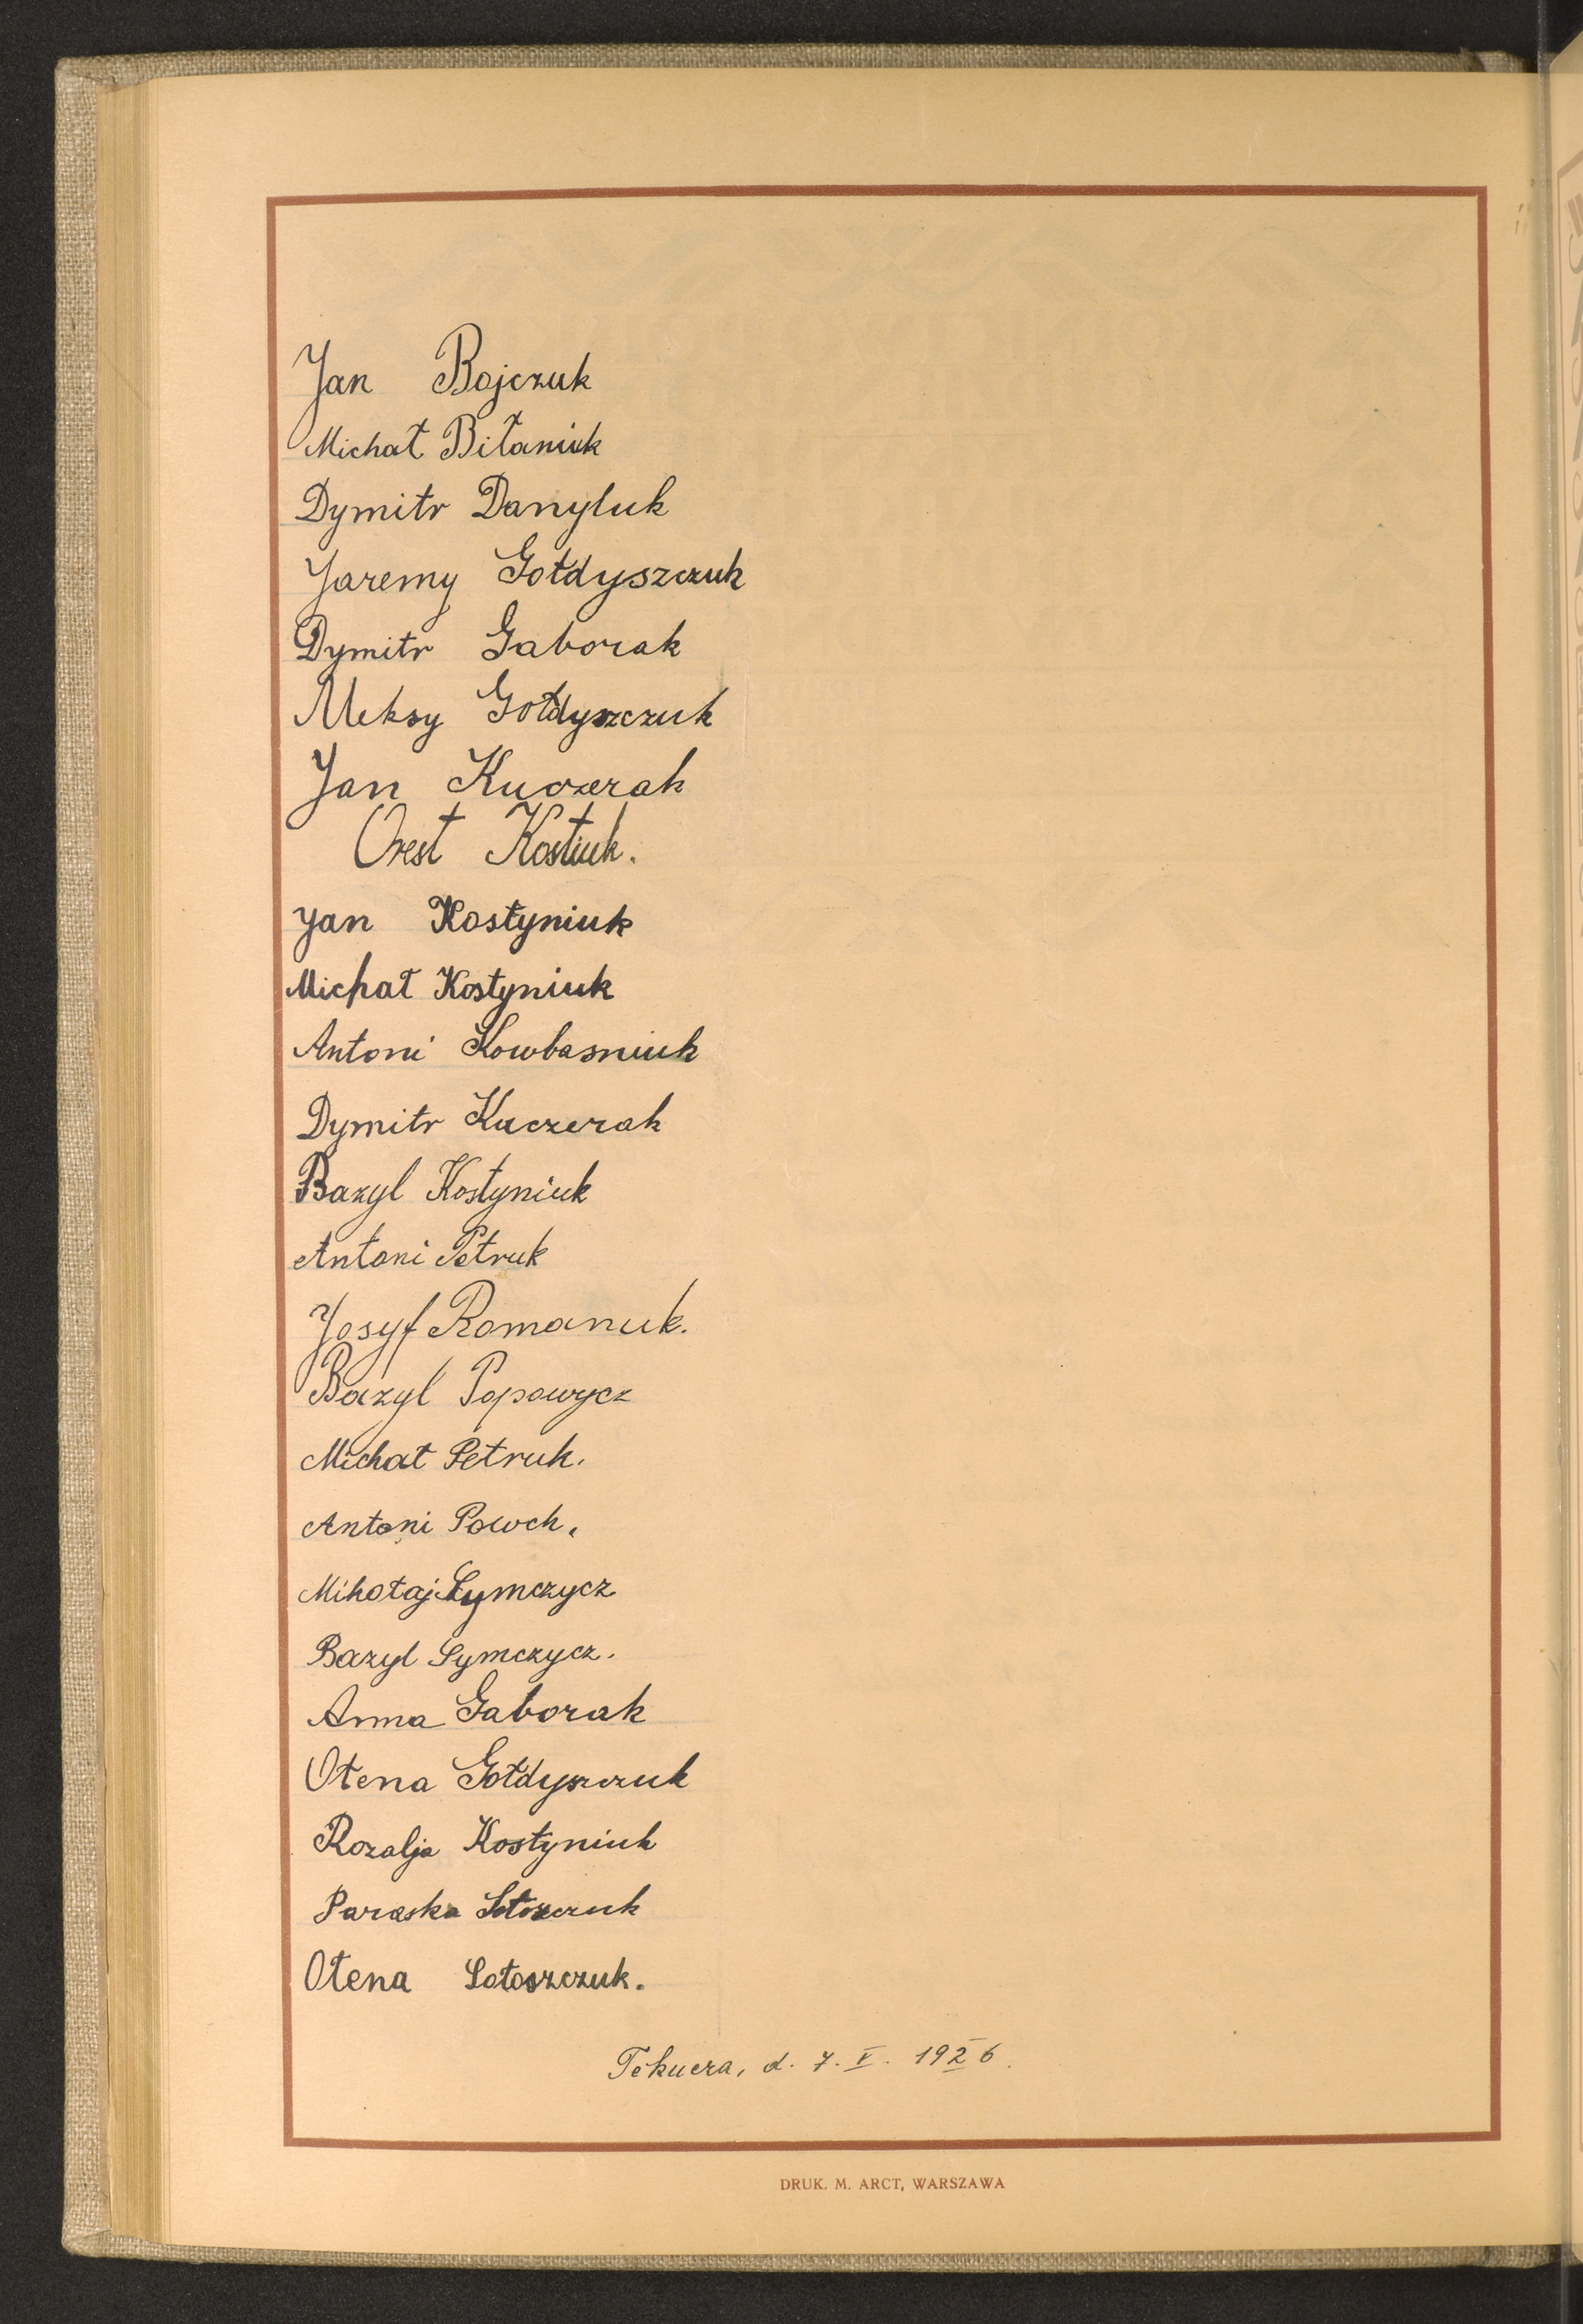 Jan Bojczuk
Michał Biłaniuk
Dymitr Danyluk
Jaremy Gołdyszczuk
Dymitr Gaborak
Aleksy Gołdyszczuk
Jan Kuczerak
Orest Kostiuk.
Jan Kostyniuk
Michał Kostyniuk
Antoni Kowbasniuk
Dymitr Kuczerak
Bazyl Kostyniuk
Antoni Petruk
Josyf Romanuk.
Bazyl Popowycz
Michał Petruk.
Antoni Powch.
Mikołaj Symczycz
Bazyl Symczycz.
Anna Gaborak
Ołena Gołdyszczuk
Rozalja Kostyniuk
Paraska
Ołena Sołoszczuk.
Tekucza, d. 7. V. 1926.
DRUK. M. ARCT, WARSZAWA